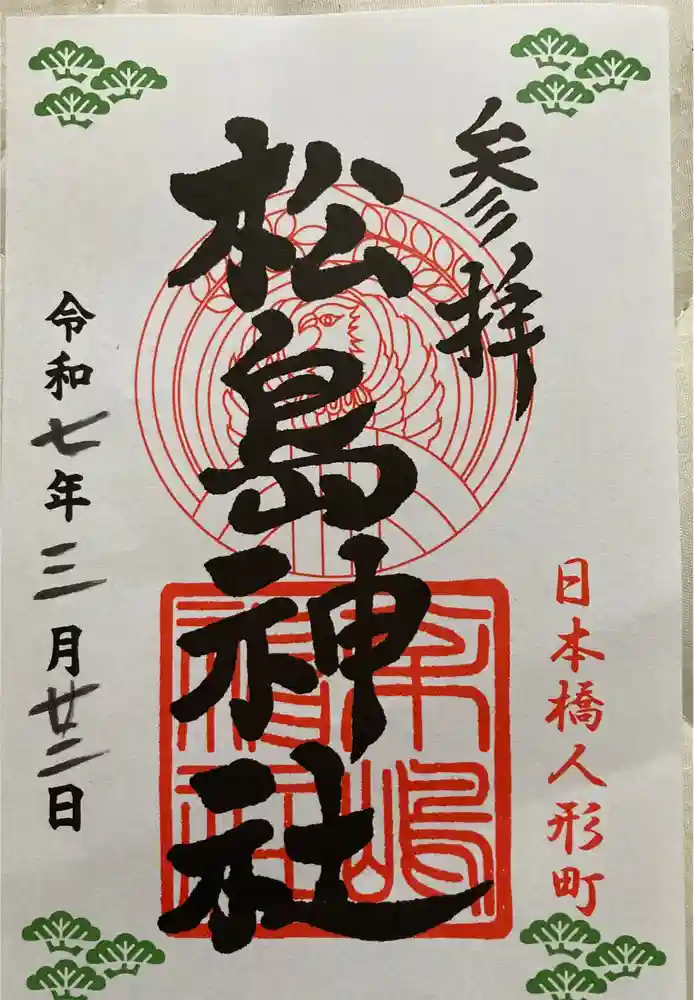 参拝
松島神社
日本橋人形町
令和七年三月廿二日